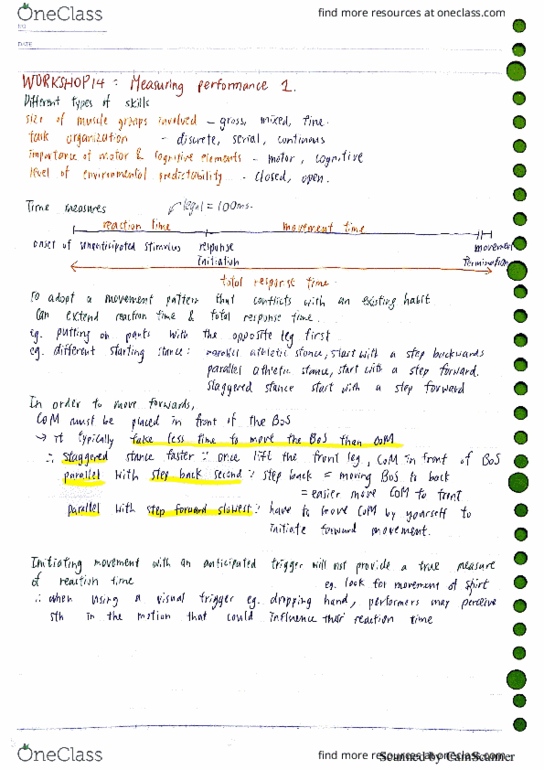 OneClass find more resources at oneclass.com
NO
DATE
WORKSHOP 14 : Measuring performance 1.
Different types of skills
size of muscle groups involved – gross, mixed, fine.
task organization – discrete, serial, continuous
importance of motor & cognitive elements – motor, cognitive
level of environmental predictability – closed, open.
Time measures legal = 100ms.
reaction time movement time
onset of unanticipated stimulus response movement
initiation termination
total response time.
To adopt a movement pattern that conflicts with an existing habit
can extend reaction time & total response time.
eg. putting on pants with the opposite leg first
eg. different starting stance: parallel athletic stance, start with a step backwards
parallel athletic stance, start with a step forward.
staggered stance start with a step forward
In order to move forwards,
CoM must be placed in front of the BoS
→ it typically take less time to move the BoS than CoM
∴ staggered stance faster ∵ once lift the front leg, CoM in front of BoS
parallel with step back second ∵ step back = moving BoS to back
= easier move CoM to front
parallel with step forward slowest ∵ have to move CoM by yourself to
initiate forward movement.
Initiating movement with an anticipated trigger will not provide a true measure
of reaction time eg. look for movement of
∴ when using a visual trigger eg. dropping hand, performers may perceive
sth in the motion that could influence their reaction time
OneClass find more resources at oneclass.com
Scanned by CamScanner